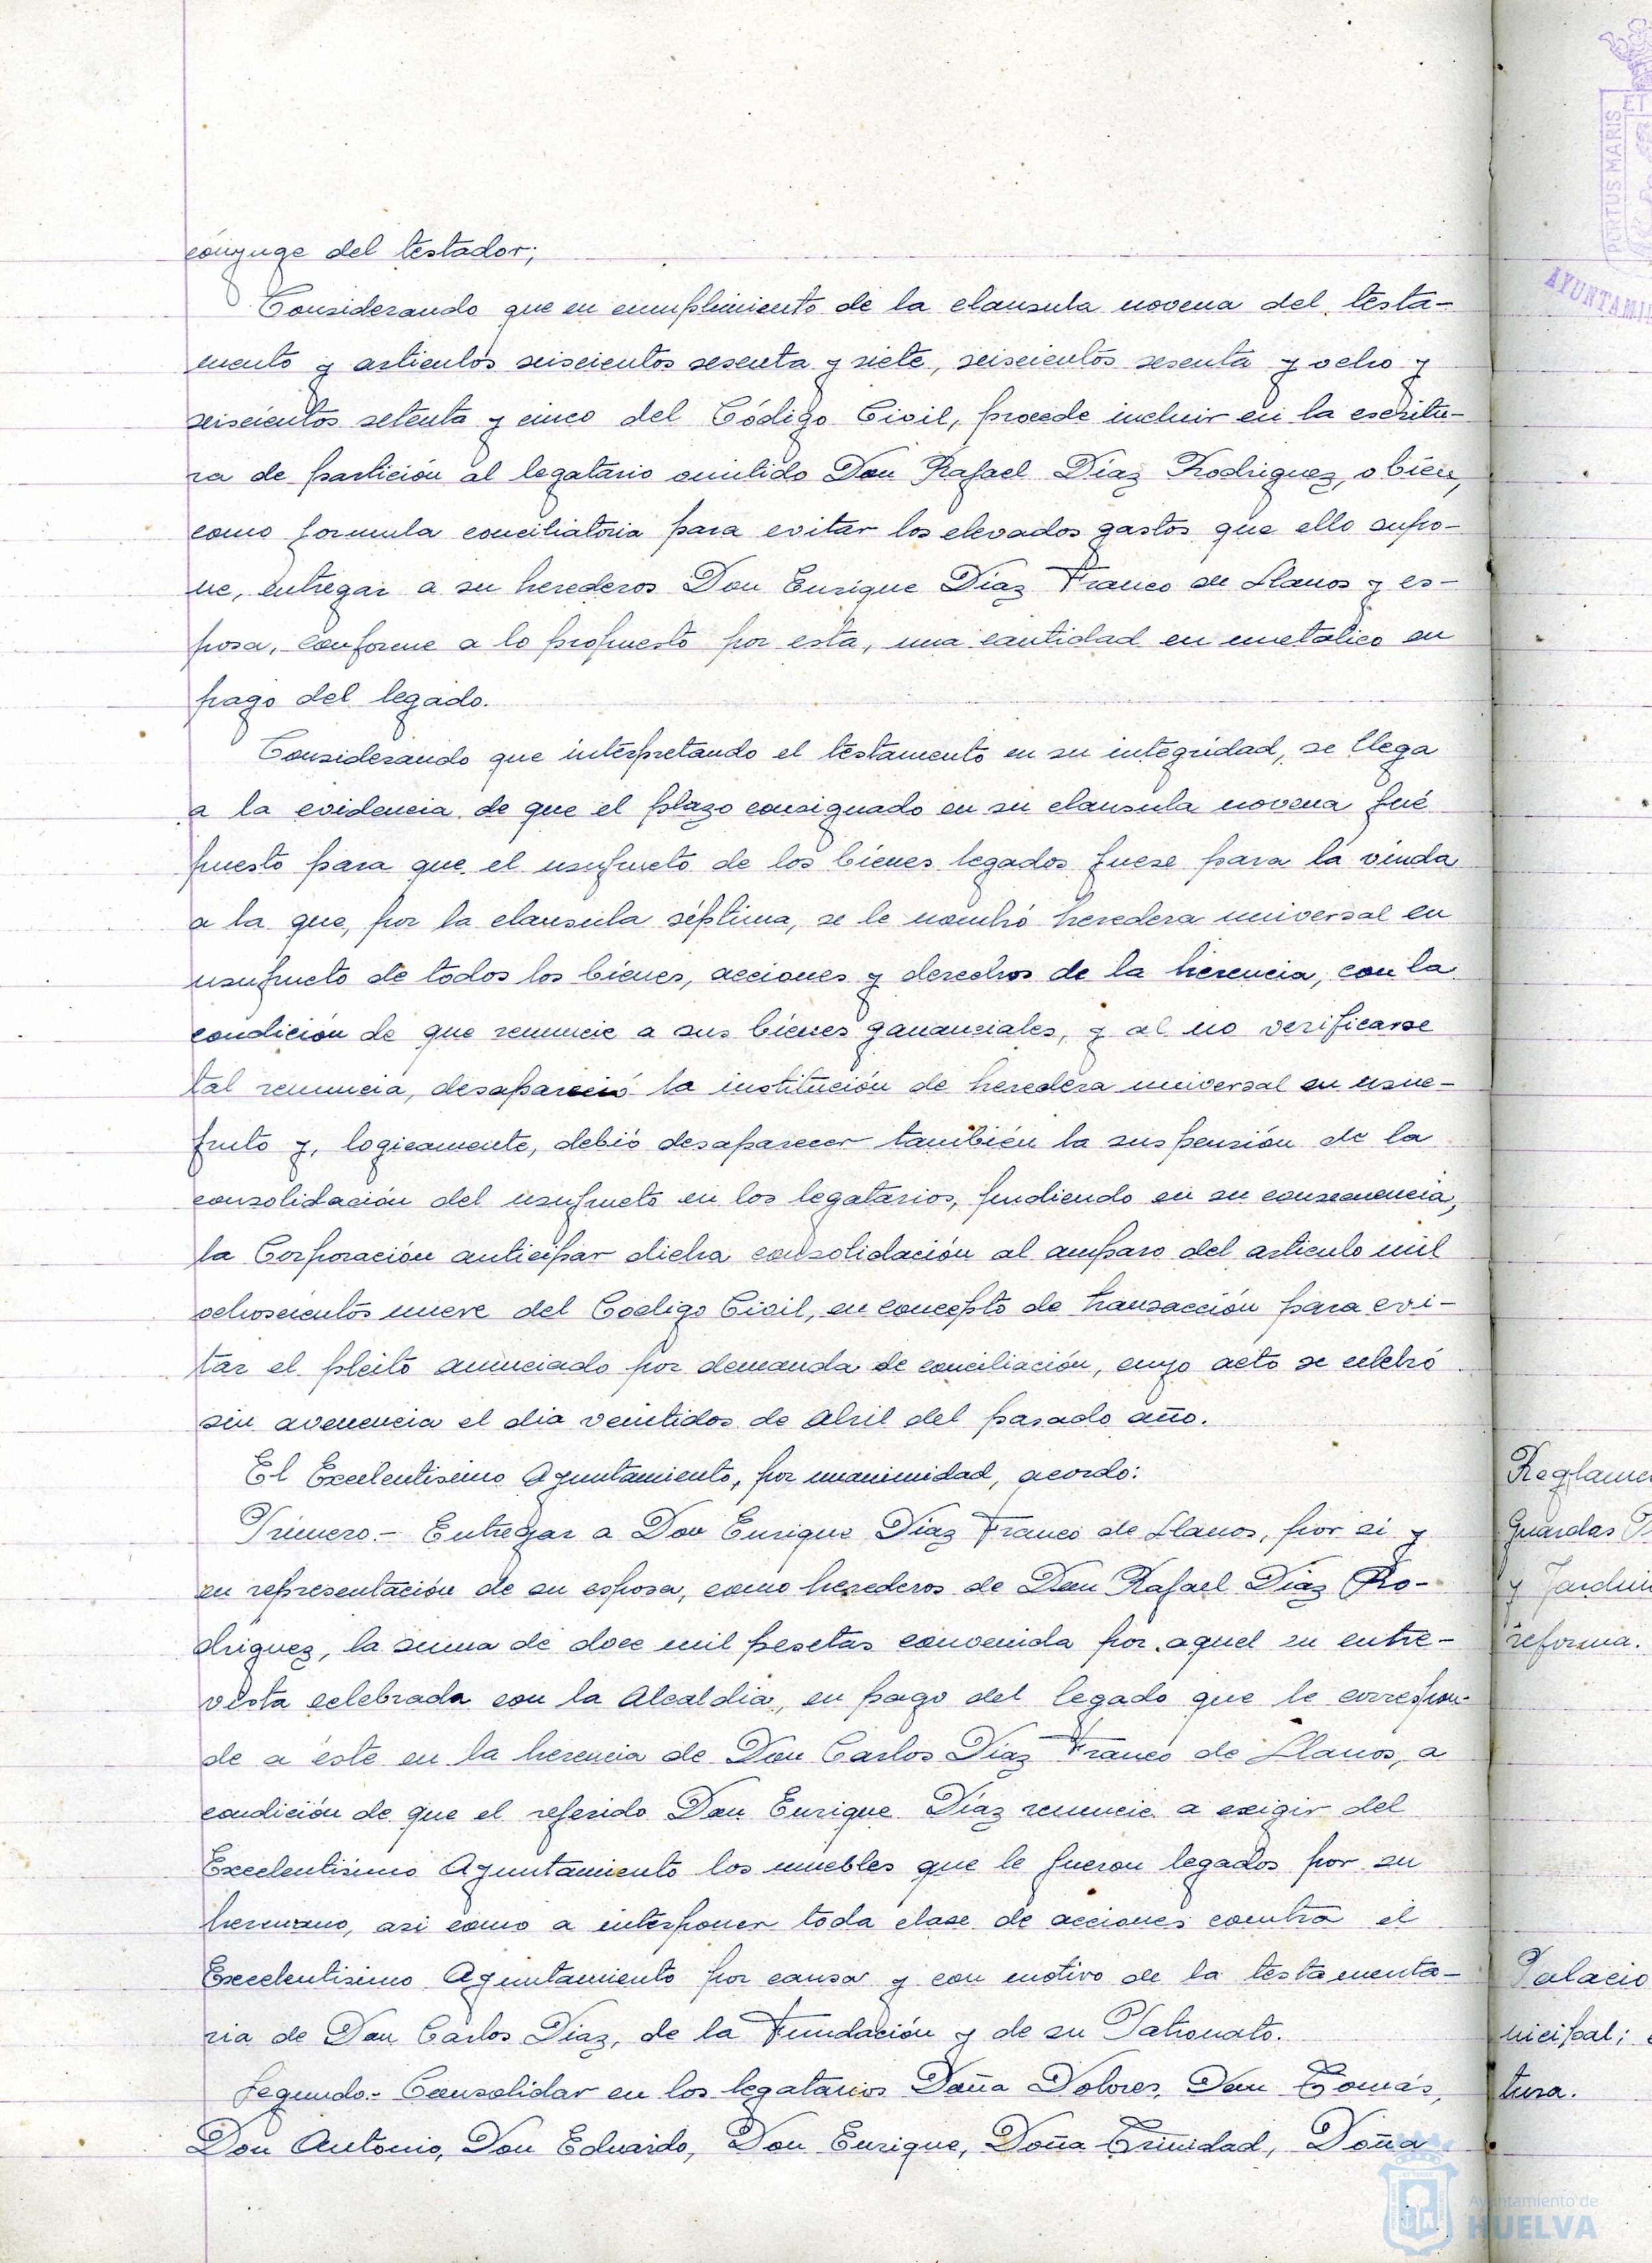 cónyuge del testador;
Considerando que en cumplimiento de la clausula novena del testa-
mento y articulos seiscientos sesenta y siete, seiscientos sesenta y ocho y
seiscientos setenta y cinco del Código Civil, procede incluir en la escritu-
ra de partición al legatario omitido Don Rafael Díaz Rodriguez, o bien,
como formula conciliatoria para evitar los elevados gastos que ello supo-
ne, entregar a su herederos Don Enrique Díaz Franco de Llanos y es-
posa, conforme a lo propuesto por esta, una cantidad en metalico en
pago del legado.
Considerando que interpretando el testamento en su integridad, se llega
a la evidencia de que el plazo consignado en su clausula novena fué
puesto para que el usufructo de los bienes legados fuese para la viuda
a la que, por la clausula séptima, se le nombró heredera universal en
usufructo de todos los bienes, acciones y derechos de la herencia, con la
condición de que renuncie a sus bienes gananciales, y al no verificarse
tal renuncia, desapareció la institución de heredera universal en usue-
fruto y, logicamente, debió desaparecer también la suspensión de la
consolidación del usufructo en los legatarios, pudiendo en su consecuencia,
la Corporación anticipar dicha consolidación al amparo del articulo mil
ochoscientos nueve del Codigo Civil, en concepto de transacción para evi-
tar el pleito anunciado por demanda de conciliación, cuyo acto se celebró
sin avenencia el dia veintidos de Abril del pasado año.
El Excelentisimo Ayuntamiento, por unanimidad, acordo:
Primero.- Entregar a Don Enrique Díaz Franco de Llanos, por si y
en representación de su esposa, como herederos de Don Rafael Díaz Ro-
driguez, la suma de doce mil pesetas convenida por aquel en entre-
vista celebrada con la Alcaldia, en pago del legado que le correspon-
de a éste en la herencia de Don Carlos Díaz Franco de Llanos, a
condición de que el referido Don Enrique Díaz renuncie a exigir del
Excelentisimo Ayuntamiento los muebles que le fueron legados por su
hermano, asi como a interponer toda clase de acciones contra el
Excelentisimo Ayuntamiento por causa y con motivo de la testamenta-
ria de Don Carlos Díaz, de la Fundación y de su Patronato.
Segundo.- Consolidar en los legatarios Doña Dolores, Don Tomás,
Don Antonio, Don Eduardo, Don Enrique, Doña Trinidad, Doña
PORTUS MARIS
ET
Guardas
reforma.
Palacio
nicipal;
tura.
Ayuntamiento de
HUELVA